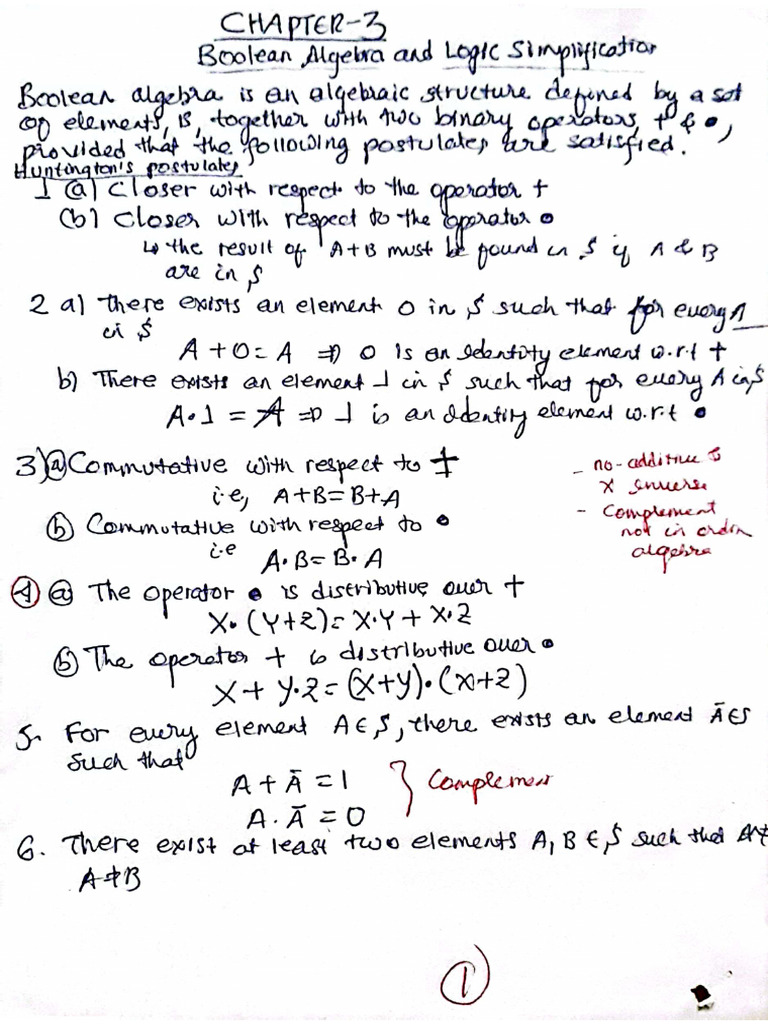 CHAPTER-3
Boolean Algebra and Logic Simplification
Boolean algebra is an algebraic structure defined by a set
of elements, B, together with two binary operators, + & •,
provided that the following postulates are satisfied.
Huntington's postulates
1 (a) Closer with respect to the operator +
(b) Closer with respect to the operator •
↳ the result of A+B must be found in S if A & B
are in S
2 a) there exists an element 0 in S such that for every A
in S
A + 0 = A ⇒ 0 is an Identity element w.r.t +
b) There exists an element 1 in S such that for every A in S
A•1 = A ⇒ 1 is an Identity element w.r.t •
3) (a) Commutative with respect to +
i.e, A+B=B+A
(b) Commutative with respect to •
i.e
A•B=B•A
- no-additive &
x inverse
- Complement
not in ordin
algebra
(4) (a) The operator • is distributive over +
X•(Y+Z)=X•Y+X•Z
(b) The operator + is distributive over •
X+Y•Z=(X+Y)•(X+Z)
5. For every element A∈S, there exists an element Ā∈S
such that
A + Ā = 1
A . Ā = 0
} Complement
6. There exist at least two elements A, B ∈ S such that A≠
A≠B
1